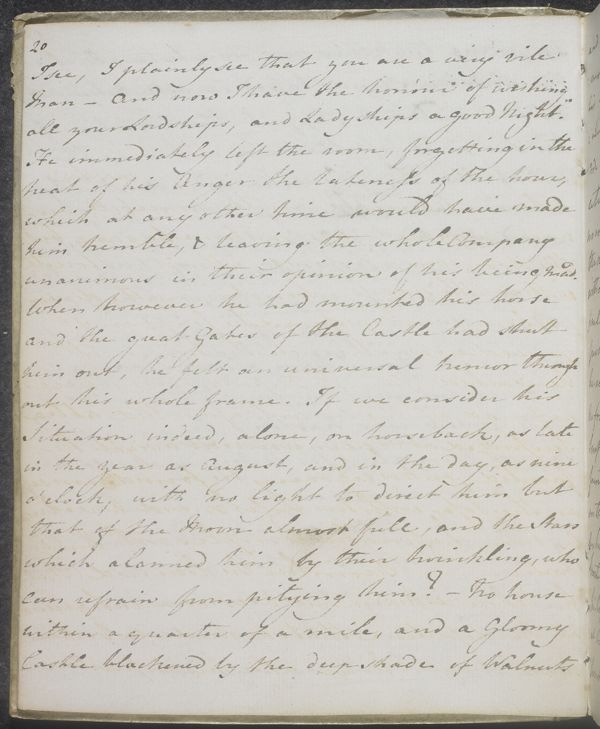 20
I see, I plainly see that you are a very vile
Man - and now I have the honour of wishing
all your Lordships, and Ladyships a good Night."
He immediately left the room, forgetting in the
heat of his Anger the lateness of the hour,
which at any other time would have made
him tremble, & leaving the whole Company
unanimous in their opinion of his being Mad.
When however he had mounted his horse
and the great Gates of the Castle had shut
him out, he felt an universal tremor through
out his whole frame. If we consider his
Situation indeed, alone, on horseback, as late
in the year as August, and in the day, as nine
o'clock, with no light to direct him but
that of the Moon almost full, and the Stars
which alarmed him by their twinkling, who
can refrain from pitying him? - No house
within a quarter of a mile, and a Gloomy
Castle blackened by the deep shade of Walnuts